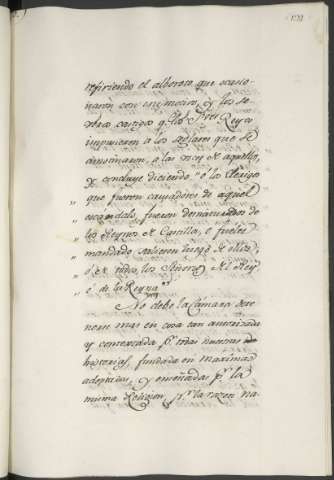 refiriendo el alboroto que ocasio-
naron con injusticia, y los se-
veros castigos q.e los S.res Reyes
impusieron a los seglares que se
amotinaron, a las voz de aquello,
y concluye diciendo "e los clerigos
" que fueron causadores de aquel
" escandalo, fueron desnaturados de
" los Reynos de Castilla, e fueles
" mandado saliesen luego de ellos,
" é de todos los Señorios del Rey
" é de la Reyna"
No debe la Cámara dete
nerse mas en cosa tan autorizada
y contextada p.r todas nuestras
historias, fundada en maximas
adoptadas, y enseñadas p.r la
misma Religion, p.r la razon na-